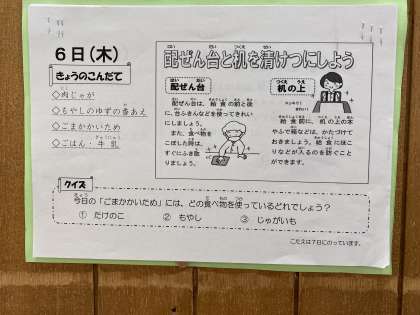 6日(木)
きょうのこんだて
◇肉じゃが
◇もやしのゆずの香あえ
◇ごまかかいため
◇ごはん・牛乳
配ぜん台と机を清けつにしよう
配ぜん台
配ぜん台は、給食の前と後
に、台ふきんなどを使ってきれい
にしましょう。
また、食べ物を
こぼした時は、
すぐにふき取
りましょう。
机の上
給食前に、机の上の本
やふで箱などは、かたづけて
おきましょう。給食にほこ
りなどが入るのを防ぐこと
ができます。
クイズ
今日の「ごまかかいため」には、どの食べ物を使っているどれでしょう?
① たけのこ ② もやし ③ じゃがいも
こたえは7日にのっています。